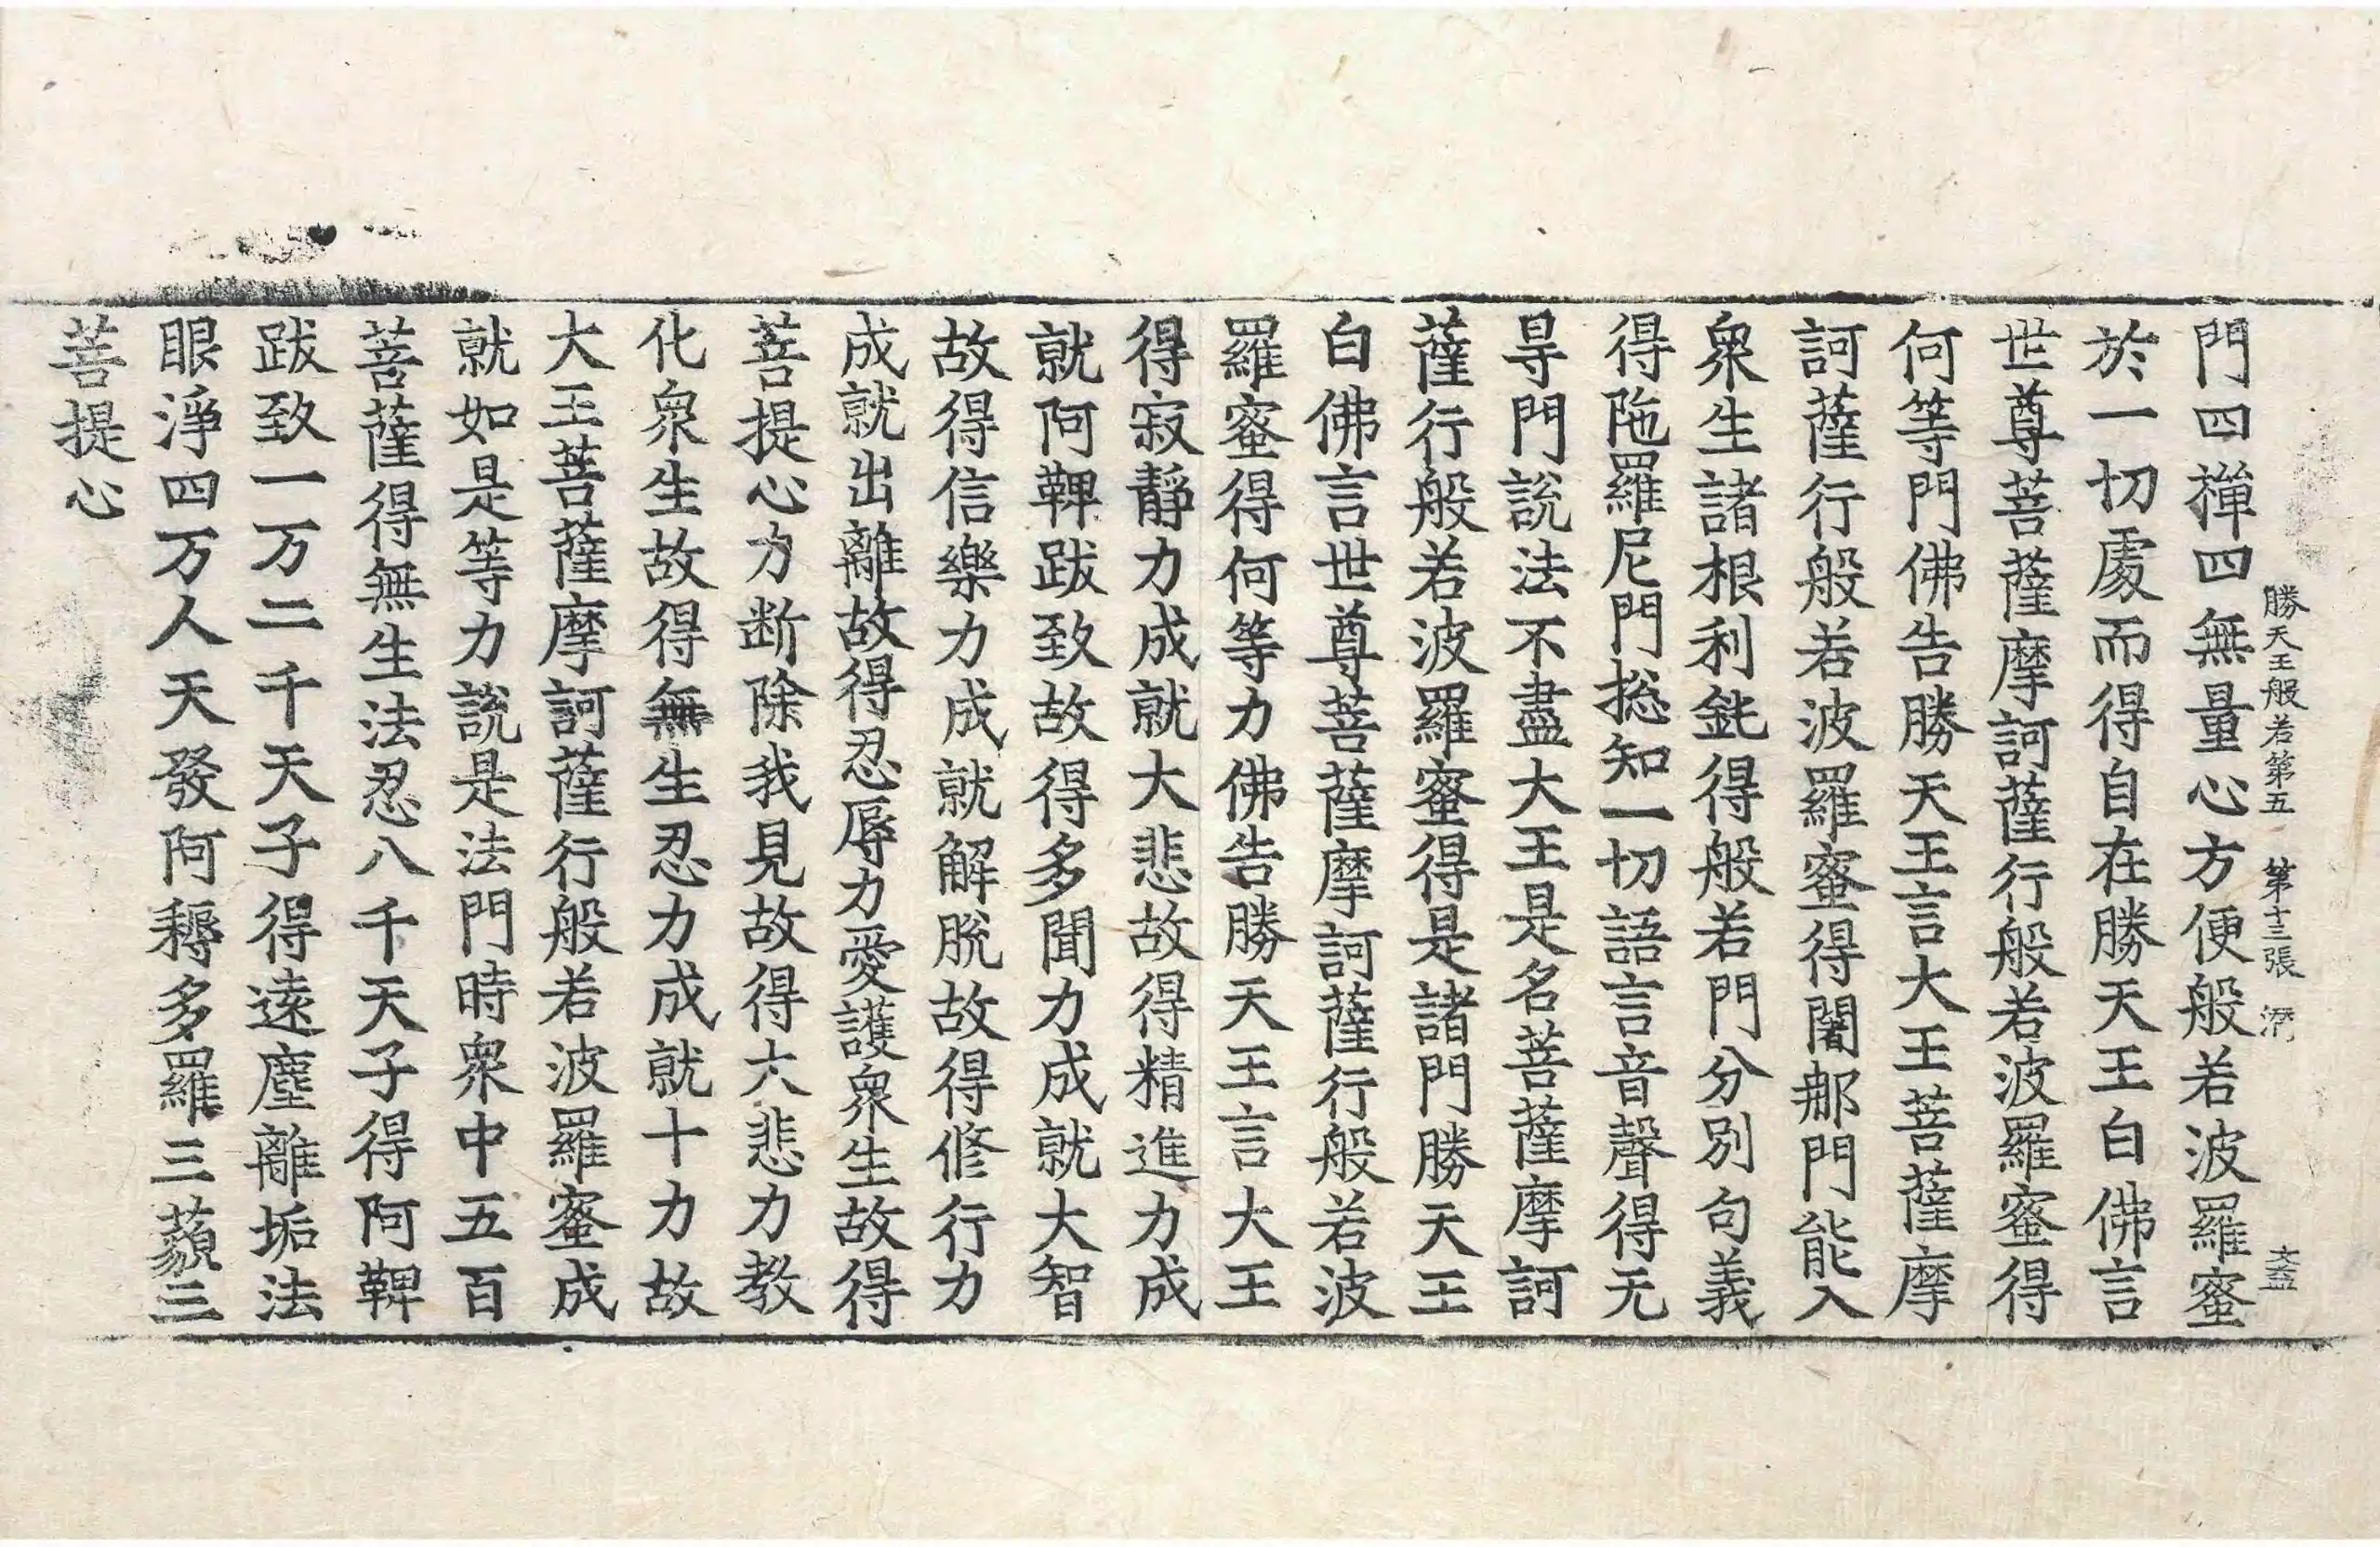 勝天王般若第五　第十三張
門四禪四無量心方便般若波羅蜜
於一切處而得自在勝天王白佛言
世尊菩薩摩訶薩行般若波羅蜜得
何等門佛告勝天王言大王菩薩摩
訶薩行般若波羅蜜得闍那門能入
衆生諸根利鈍得般若門分別句義
得陁羅尼門揔知一切語言音聲得无
㝵門說法不盡大王是名菩薩摩訶
薩行般若波羅蜜得是諸門勝天王
白佛言世尊菩薩摩訶薩行般若波
羅蜜得何等力佛告勝天王言大王
得寂靜力成就大悲故得精進力成
就阿鞞跋致故得多聞力成就大智
故得信樂力成就解脫故得修行力
成就出離故得忍辱力愛護衆生故得
菩提心力断除我見故得大悲力教
化衆生故得無生忍力成就十力故
大王菩薩摩訶薩行般若波羅蜜成
就如是等力說是法門時衆中五百
菩薩得無生法忍八千天子得阿鞞
跋致一万二千天子得遠塵離垢法
眼淨四万人天發阿耨多羅三藐三
菩提心